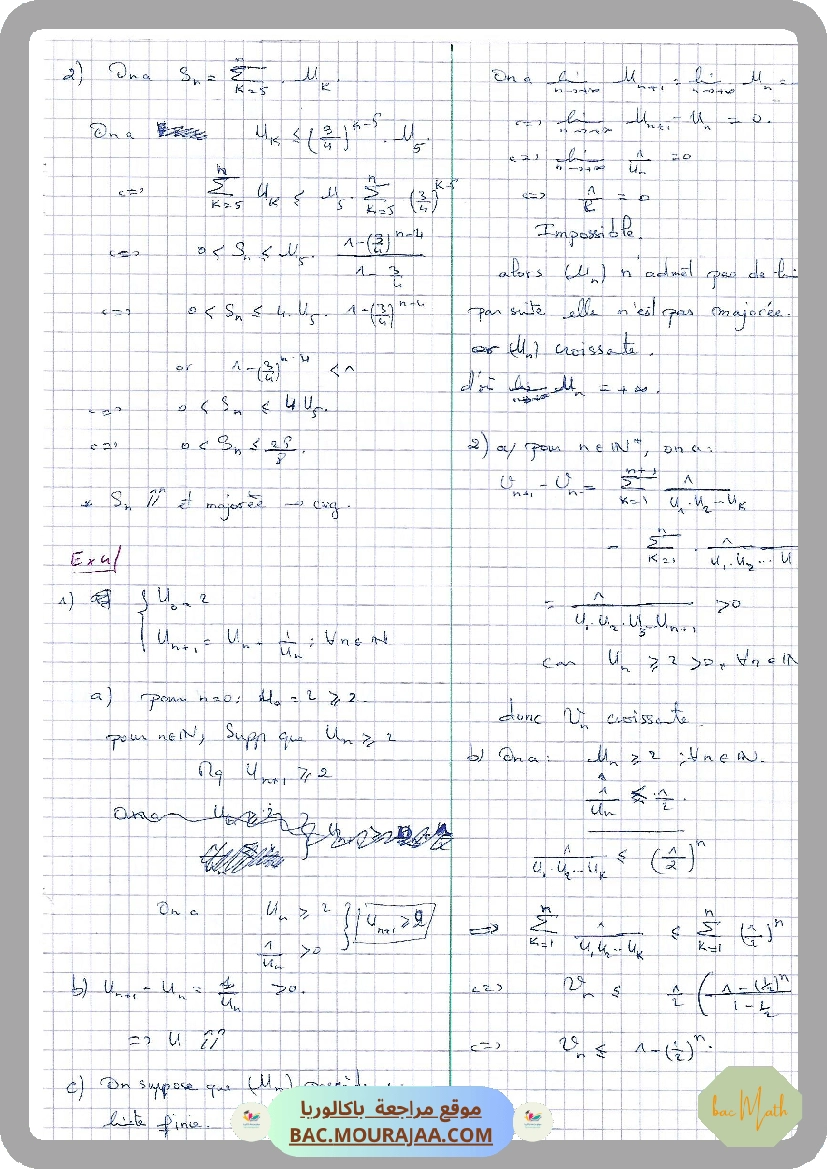 2) On a Sn = Σ_{K=5}^{n} U_K.
On a U_K ≤ (3/4)^{K-5} . U_5.
<=> Σ_{K=5}^{n} U_K ≤ U_5 . Σ_{K=5}^{n} (3/4)^{K-5}
<=> 0 < Sn ≤ U_5 . (1-(3/4)^{n-4})/(1-3/4)
<=> 0 < Sn ≤ 4.U_5. 1-(3/4)^{n-4}
or 1-(3/4)^{n-4} < 1
<=> 0 < Sn ≤ 4U_5.
<=> 0 < Sn ≤ 25/8.
* Sn ⇈ et majorée → cvg.
Ex4/
1) { U_0 = 2
U_{n+1} = U_n + 1/U_n ; ∀n∈ℕ
a) pour n=0: U_0 = 2 ≥ 2.
pour n∈ℕ, Supp que U_n ≥ 2
Mq U_{n+1} ≥ 2
On a U_n ≥ 2 } U_{n+1} ≥ 2
1/U_n > 0
b) U_{n+1} - U_n = 1/U_n > 0.
=> U ⇈
c) On suppose que (U_n)
limite finie.
On a lim_{n→+∞} U_{n+1} = lim_{n→+∞} U_n =
<=> lim_{n→+∞} U_{n+1} - U_n = 0.
<=> lim_{n→+∞} 1/U_n = 0
<=> 1/ℓ = 0
Impossible.
alors (U_n) n'admet pas de
par suite elle n'est pas majorée.
or (U_n) croissante.
d'où lim_{n→+∞} U_n = +∞.
2) a/ pour n∈ℕ*, on a:
V_{n+1} - V_n = Σ_{K=1}^{n+1} 1/(U_1.U_2...U_K)
- Σ_{K=1}^{n} . 1/(U_1.U_2...U
= 1/(U_1.U_2.U_3...U_{n+1}) > 0
car U_n ≥ 2 > 0, ∀n∈ℕ
donc V_n croissante.
b) On a: U_n ≥ 2 ; ∀n∈ℕ.
1/U_n ≤ 1/2.
1/(U_1.U_2...U_K) ≤ (1/2)^n
=> Σ_{K=1}^{n} 1/(U_1U_2...U_K) ≤ Σ_{K=1}^{n} (1/2)^n
<=> V_n ≤ 1/2 ((1-(1/2)^n)/(1-1/2)
<=> V_n ≤ 1-(1/2)^n.
موقع مراجعة باكالوريا
BAC.MOURAJAA.COM
bac Math